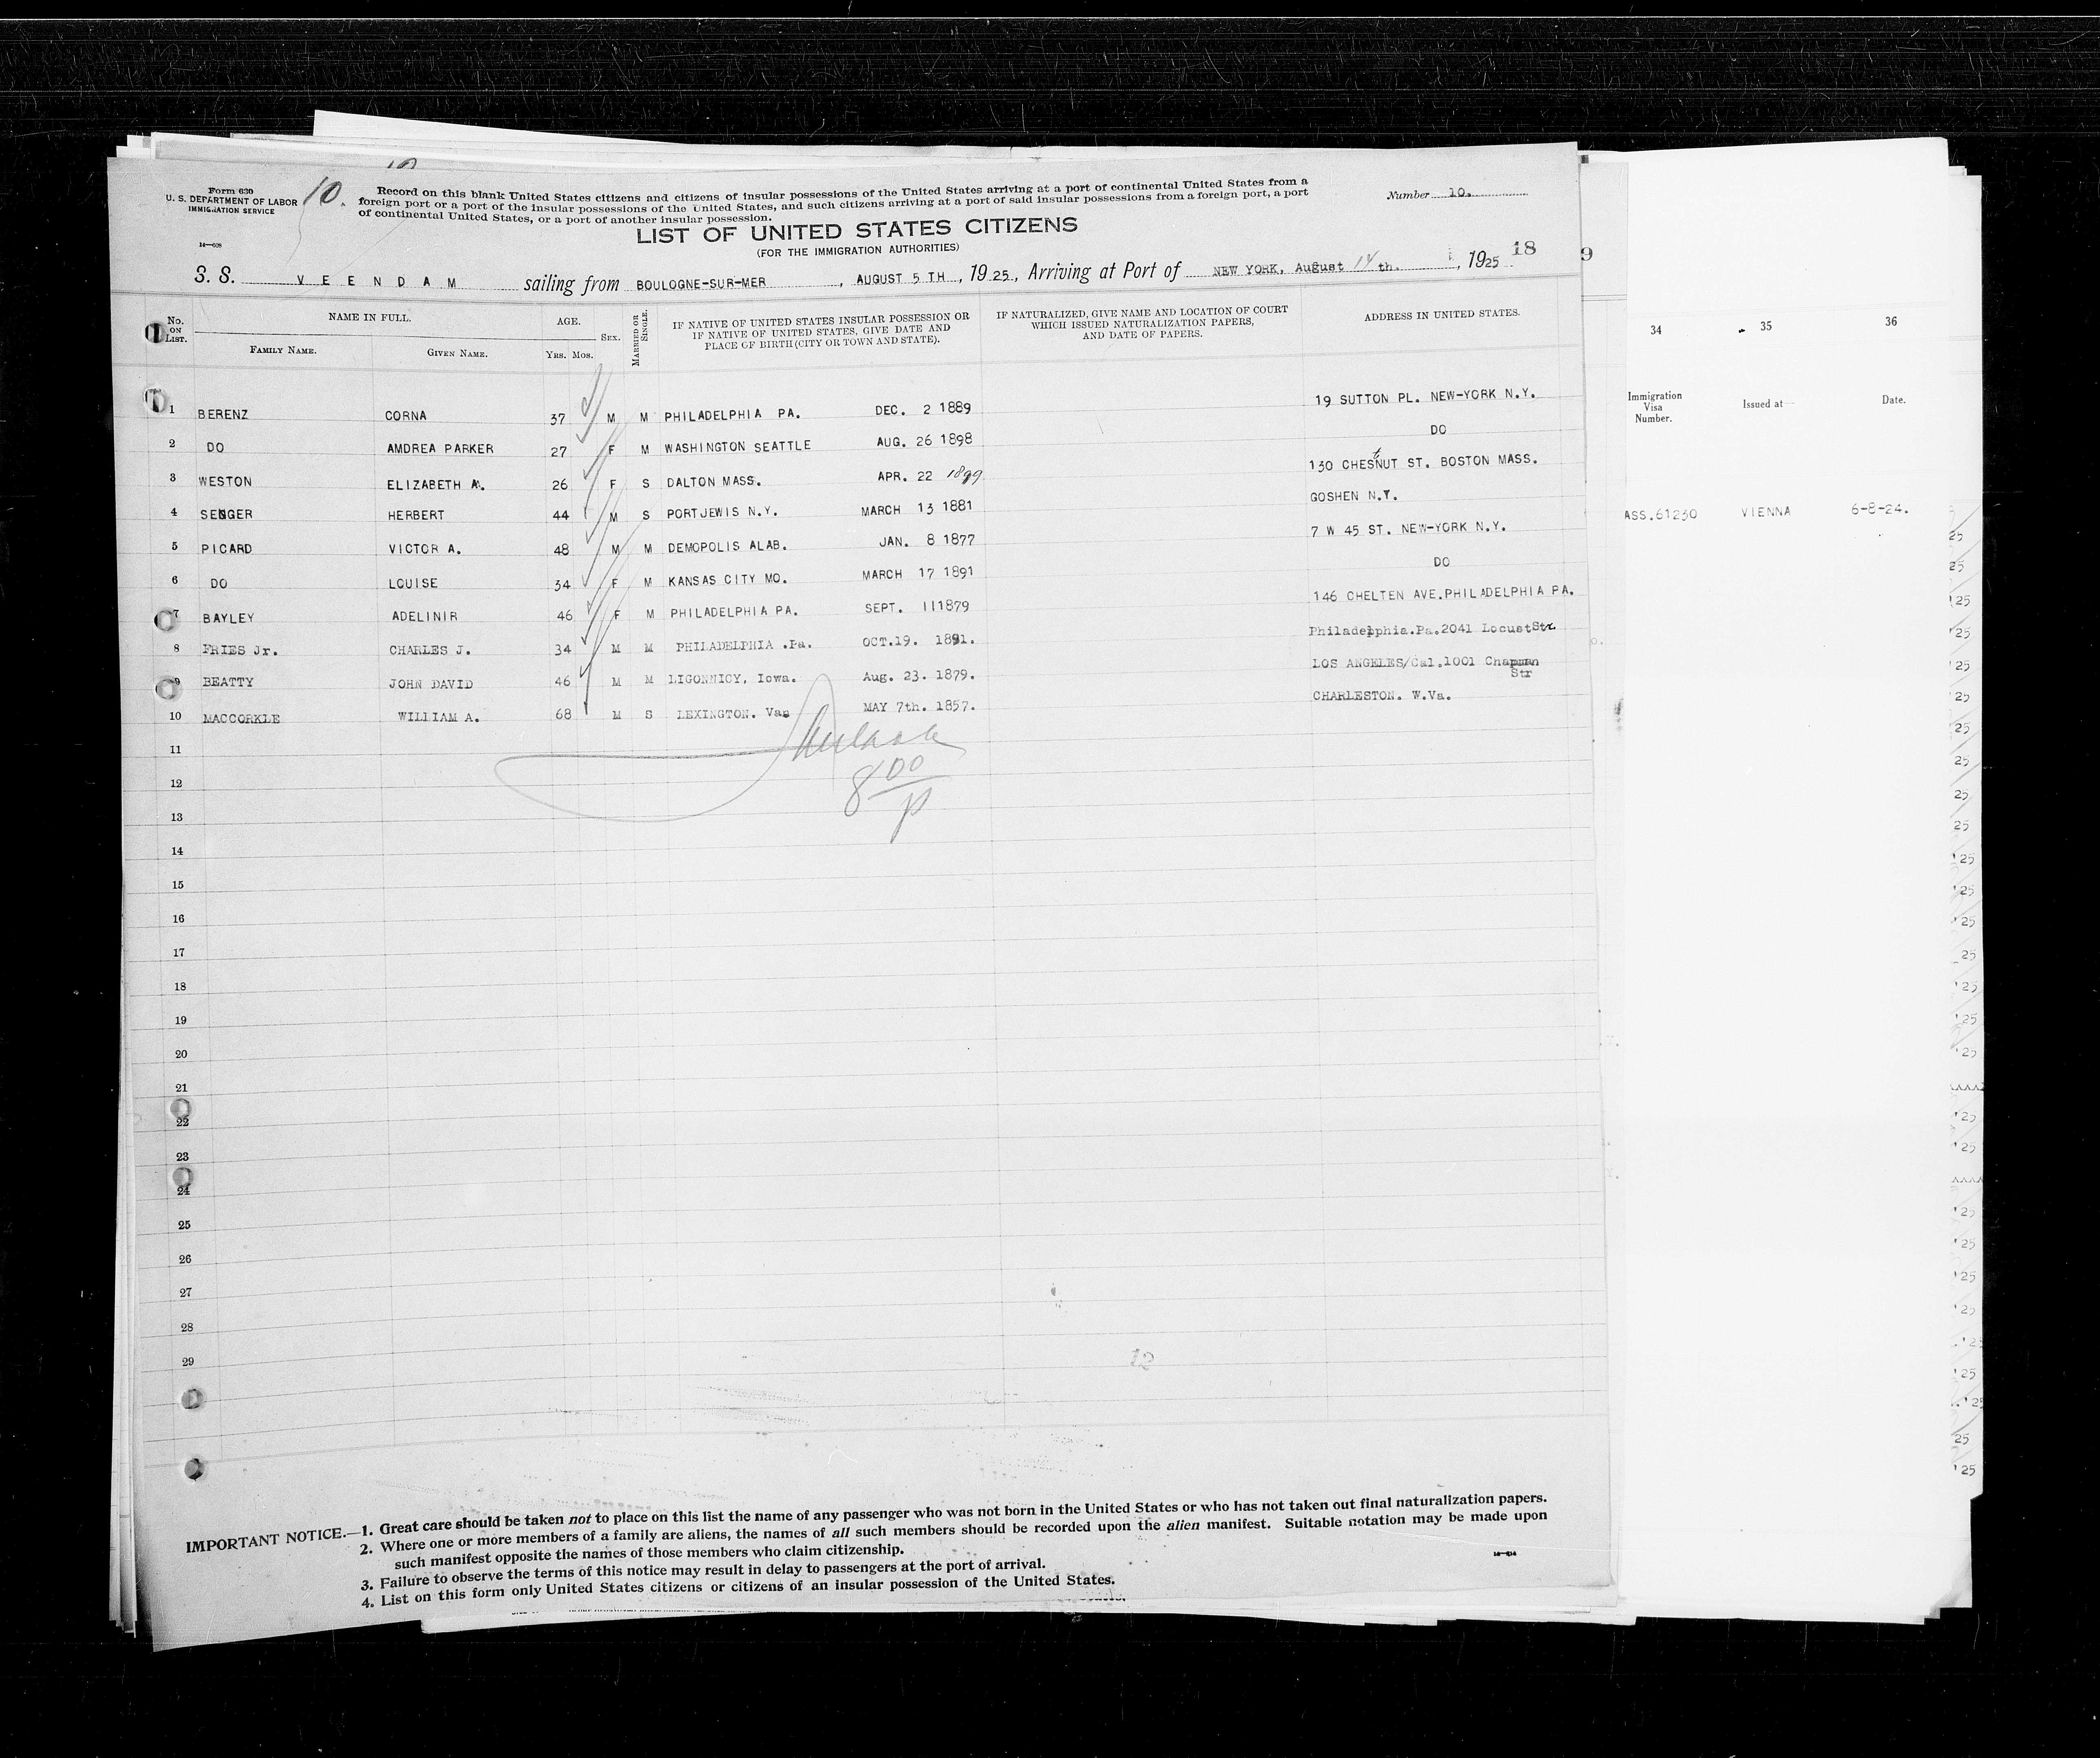 Form 630
U. S. DEPARTMENT OF LABOR
IMMIGRATION SERVICE
10.
Record on this blank United States citizens and citizens of insular possessions of the United States arriving at a port of continental United States from a
foreign port or a port of the insular possessions of the United States, and such citizens arriving at a port of said insular possessions from a foreign port, a port
of continental United States, or a port of another insular possession.
Number 10.
LIST OF UNITED STATES CITIZENS
(FOR THE IMMIGRATION AUTHORITIES)
18
S. S. VEENDAM sailing from BOULOGNE-SUR-MER, AUGUST 5 TH, 1925, Arriving at Port of NEW YORK, August 14 th., 1925
No. ON LIST.
NAME IN FULL.
FAMILY NAME.
GIVEN NAME.
AGE.
YRS. MOS.
SEX.
MARRIED OR SINGLE.
IF NATIVE OF UNITED STATES INSULAR POSSESSION OR
IF NATIVE OF UNITED STATES, GIVE DATE AND
PLACE OF BIRTH (CITY OR TOWN AND STATE).
IF NATURALIZED, GIVE NAME AND LOCATION OF COURT
WHICH ISSUED NATURALIZATION PAPERS,
AND DATE OF PAPERS.
ADDRESS IN UNITED STATES.
1 BERENZ CORNA 37 M M PHILADELPHIA PA. DEC. 2 1889 19 SUTTON PL. NEW-YORK N.Y.
2 DO AMDREA PARKER 27 F M WASHINGTON SEATTLE AUG. 26 1898 DO
3 WESTON ELIZABETH A. 26 F S DALTON MASS. APR. 22 1899 130 CHESTNUT ST. BOSTON MASS.
4 SENGER HERBERT 44 M S PORTJEWIS N.Y. MARCH 13 1881 GOSHEN N.Y.
5 PICARD VICTOR A. 48 M M DEMOPOLIS ALAB. JAN. 8 1877 7 W 45 ST. NEW-YORK N.Y.
6 DO LOUISE 34 F M KANSAS CITY MO. MARCH 17 1891 DO
7 BAYLEY ADELINIR 46 F M PHILADELPHIA PA. SEPT. 111879 146 CHELTEN AVE.PHILADELPHIA PA.
8 FRIES Jr. CHARLES J. 34 M M PHILADELPHIA .Pa. OCT.19. 1891. Philadelphia.Pa.2041 LocustStr.
9 BEATTY JOHN DAVID 46 M M LIGONNICY, Iowa. Aug. 23. 1879. LOS ANGELES/Cal.1001 Chapman Str
10 MACCORKLE WILLIAM A. 68 M S LEXINGTON. Vas MAY 7th. 1857. CHARLESTON. W.Va.
8 00
p
11
12
13
14
15
16
17
18
19
20
21
22
23
24
25
26
27
28
29
12
IMPORTANT NOTICE.—1. Great care should be taken not to place on this list the name of any passenger who was not born in the United States or who has not taken out final naturalization papers.
2. Where one or more members of a family are aliens, the names of all such members should be recorded upon the alien manifest. Suitable notation may be made upon
such manifest opposite the names of those members who claim citizenship.
3. Failure to observe the terms of this notice may result in delay to passengers at the port of arrival.
4. List on this form only United States citizens or citizens of an insular possession of the United States.
9
34 35 36
Immigration Visa Number.
Issued at—
Date.
ASS.61230 VIENNA 6-8-24.